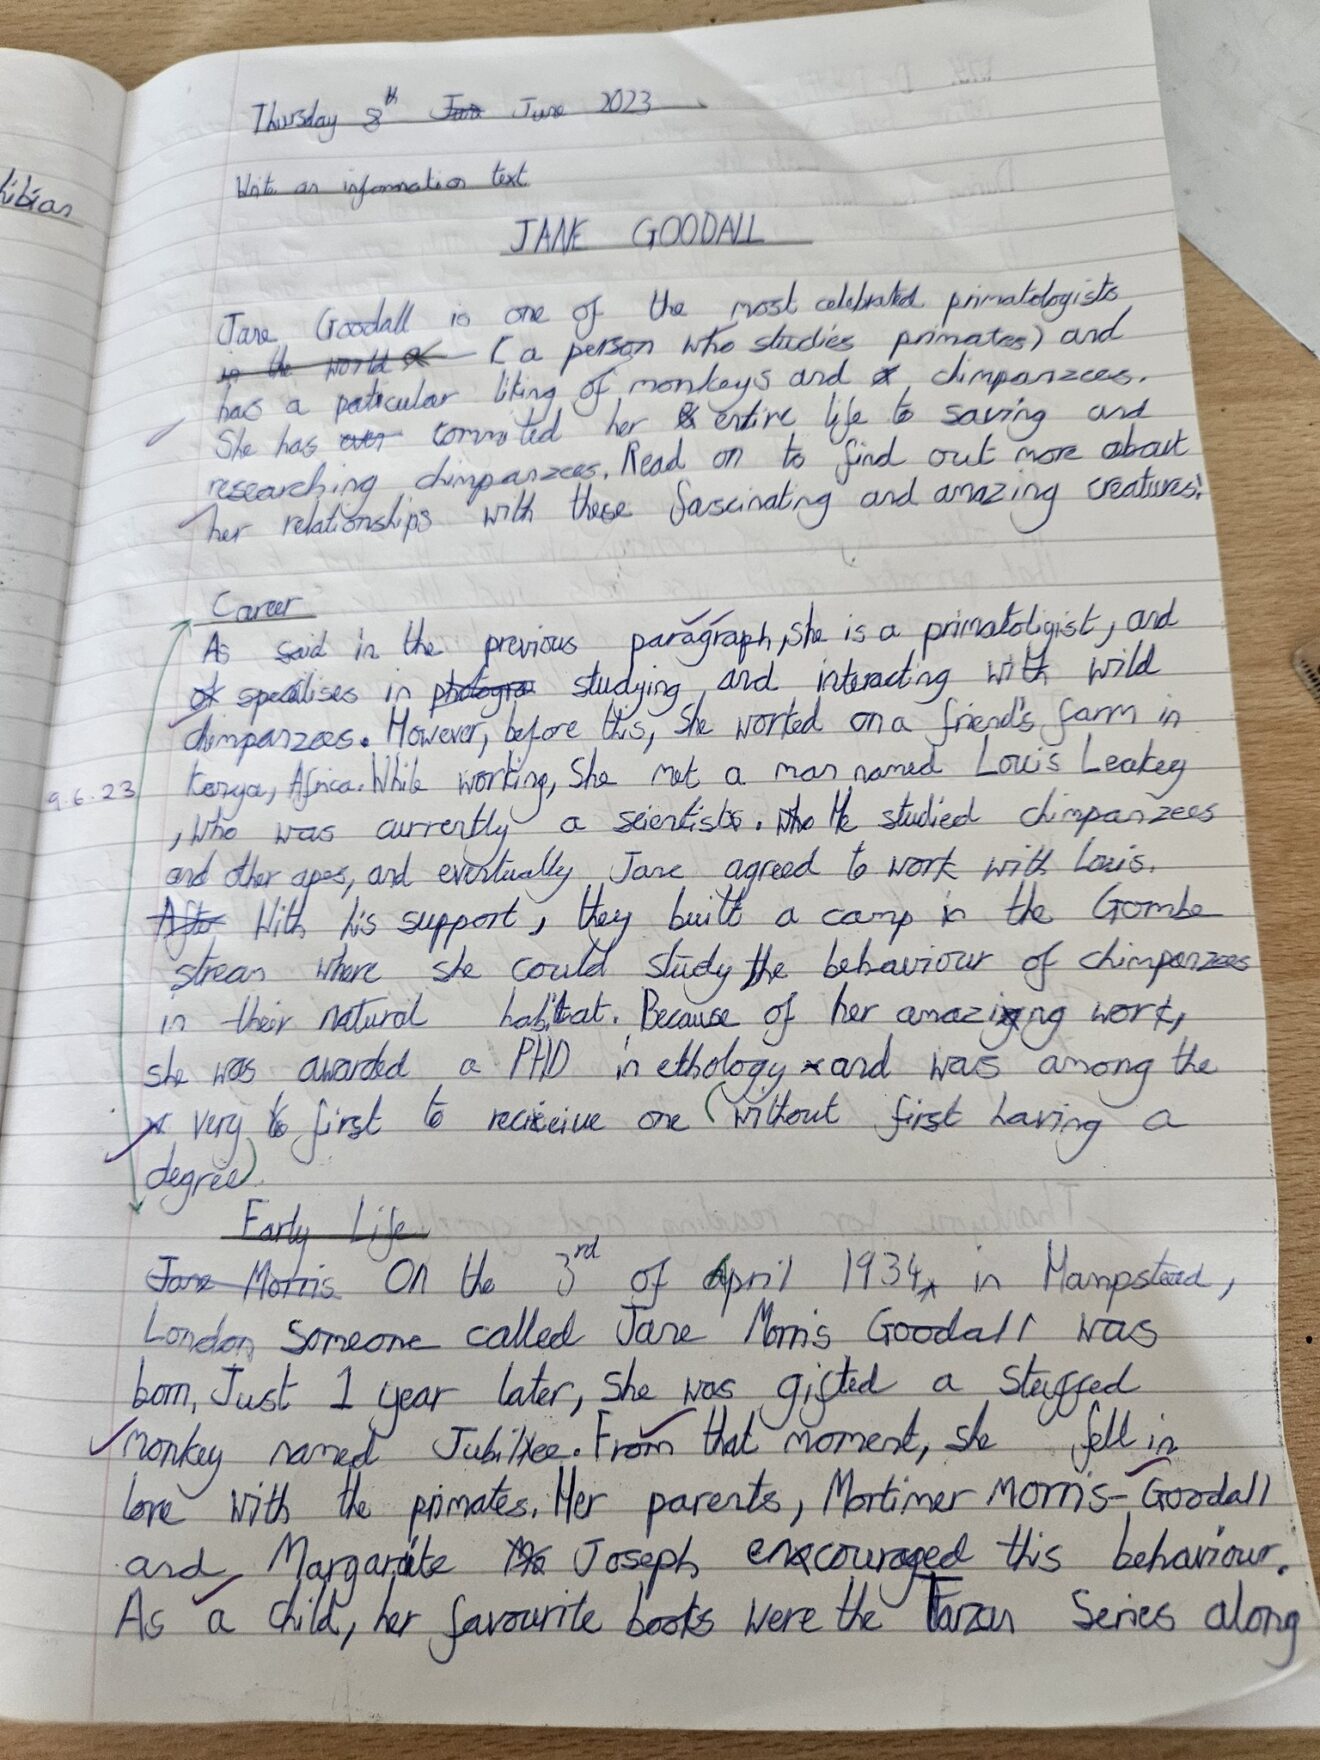 hibian
Thursday 8th Jan June 2023
Write an information text
JANE GOODALL
Jane Goodall is one of the most celebrated primatologists
in the world (a person who studies primates) and
has a paticular liking of monkeys and chimpanzees.
She has ever commited her entire life to saving and
researching chimpanzees. Read on to find out more about
her relationships with these fascinating and amazing creatures!
Career
As said in the previous paragraph, she is a primatoligist, and
specilises in photogra studying and interacting with wild
chimpanzees. However, before this, she worked on a friend's farm in
Kenya, Africa. While working, she met a man named Louis Leakey
9.6.23
, who was currently a scientists. who He studied chimpanzees
and other apes, and eventually Jane agreed to work with Louis.
After With his support, they built a camp in the Gombe
strean where she could study the behaviour of chimpanzees
in their natural habitat. Because of her amazing work,
she was awarded a PHD in ethology and was among the
very to first to recieive one (without first having a
degree).
Early Life
Jane Morris On the 3rd of April 1934 in Hampstead,
London someone called Jane Morris Goodall was
born. Just 1 year later, she was gifted a stuffed
monkey named Jubilee. From that moment, she fell in
love with the primates. Her parents, Mortimer Morris-Goodall
and Margaraite Joseph encouraged this behaviour.
As a child, her favourite books were the Tarzan Series along